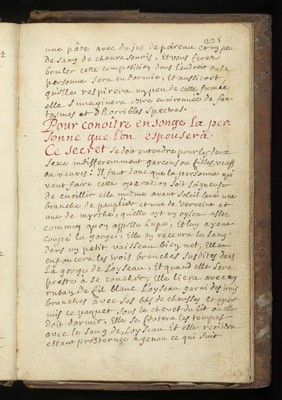 221
une pâte avec du jus de pareau et un peu
de sang de chauve souris, Et vous ferez
bruler cette composition dans l'endroit ou la
personne sera endormie, Et aussitost
quelle respirera un peu de cette fumée
elle s'imaginera estre environnée de fan-
taimes et d'horribles spectres.
Pour conoitre en songe la per-
sonne que l'on espousera.
Ce secret se doit entendre pour les deux
sexes indifferemment garçons ou filles, veufs
ou veuves; Il faut donc que la personne qui
veut faire cette operation soit soigneuse
de cueillir elle même avant soleil levé une
branche de peuplier et une de verveine et
une de myrthe, quelle ayt un oyseau assez
commun qu'on appelle hupe, Et luy ayant
coupé la gorge, Elle en recevra le sang
dans un petit vaisseau bien net, Elle
entoncera les trois branches susdites dans
la gorge de loyseau, Et quand elle sera
preste a se coucher, Elle liera avec un
ruban de fil blanc loyseau garni des trois
branches avec ses bas de chausses et ayant
mis ce paquet sous le chevet du lit ou elle
doit dormir, Elle se frotera les tempes
avec le sang de loyseau Et elle recitera
estant prosternée a genou ce qui suit